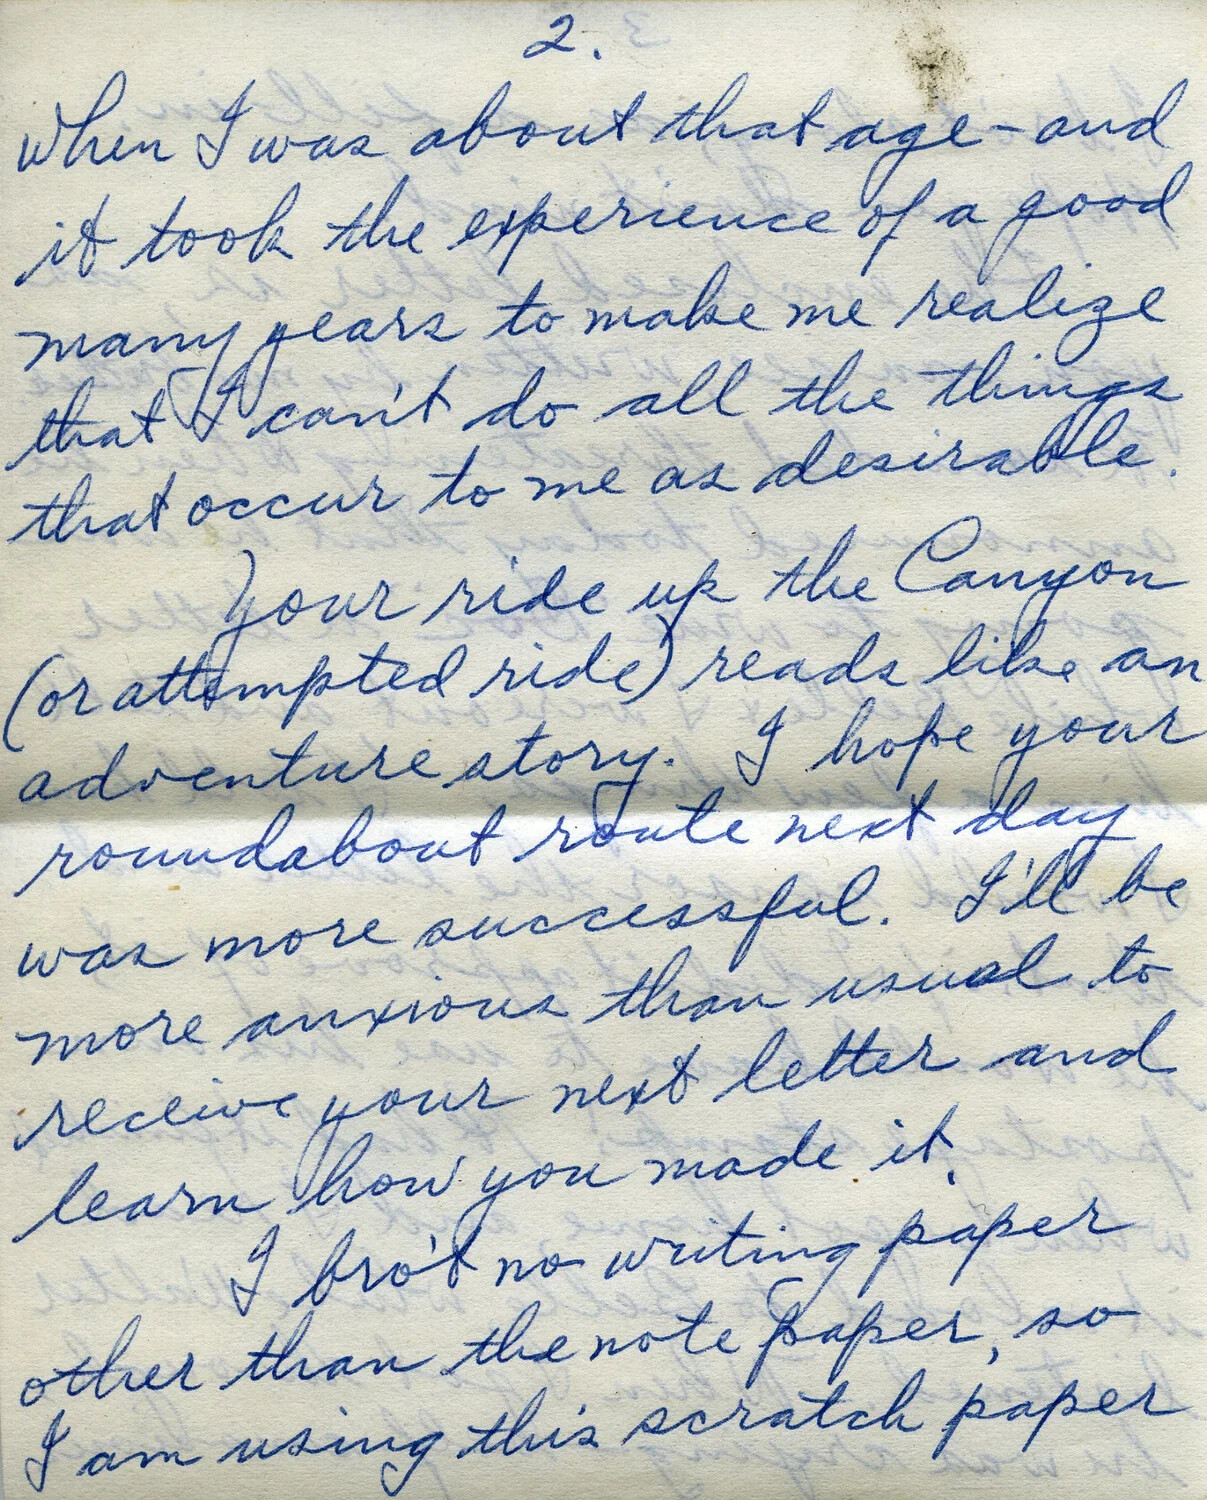 2.
When I was about that age - and
it took the experience of a good
many years to make me realize
that I can't do all the things
that occur to me as desirable.
Your ride up the Canyon
(or attempted ride) reads like an
adventure story. I hope your
roundabout route next day
was more successful. I'll be
more anxious than usual to
receive your next letter and
learn how you made it.
I bro't no writing paper
other than the note paper, so
I am using this scratch paper